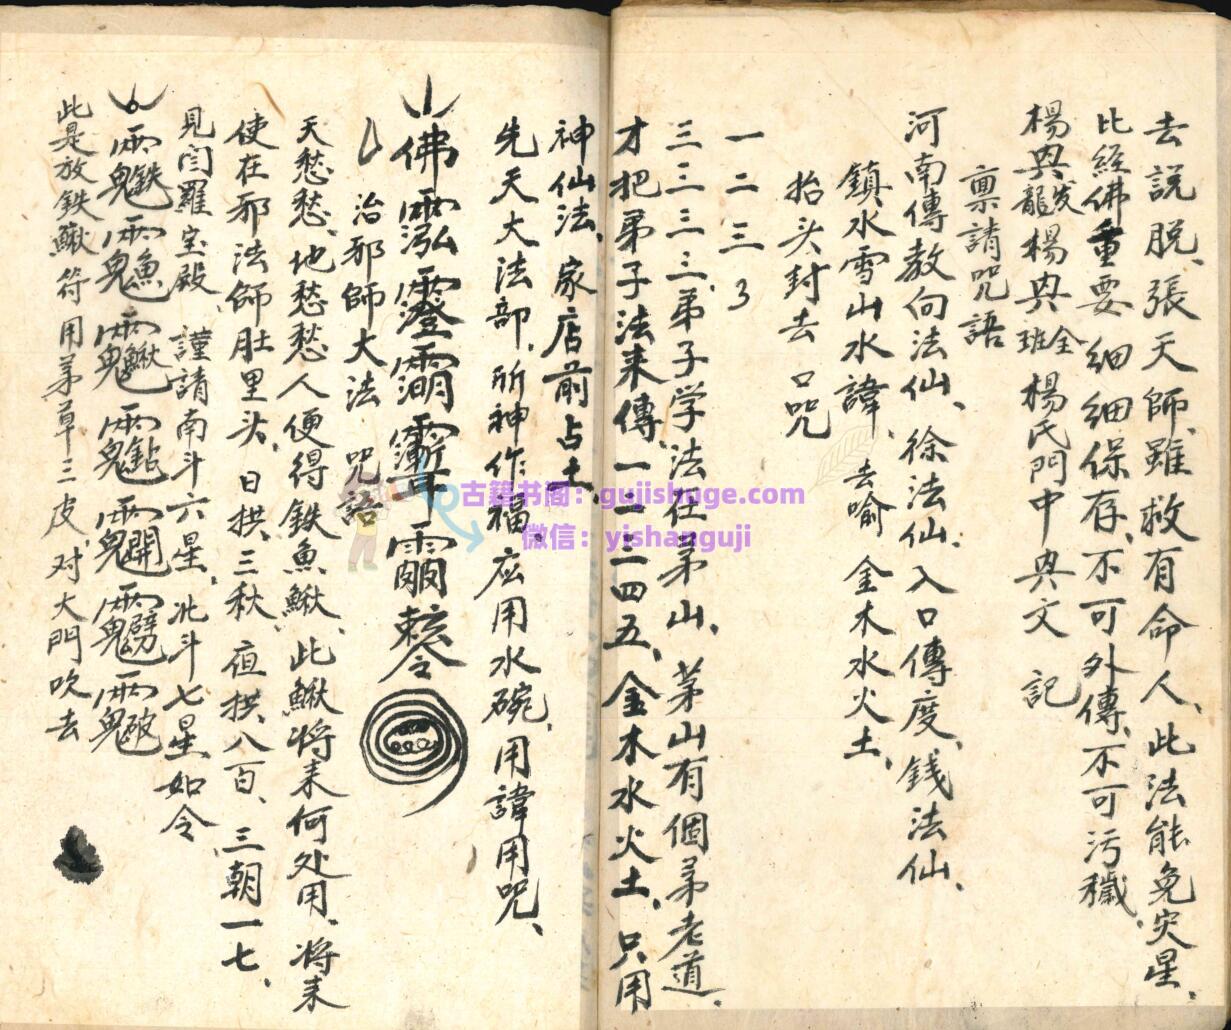 去説脱、張天師、雖救有命人、此法能免灾星、
比經佛重要 细细保存、不可外傳、不可污穢、
楊興发龍 楊興全班 楊氏門中興文 記
禀請咒語
河南傳教向法仙、徐法仙、入口傳度、錢法仙、
鎮水雪山水諱、去喻 金木水火土、
抬头封去口咒
一二三3
三三三三、弟子学法在茅山、茅山有個茅老道、
才把弟子法来傳、一二三四五、金木水火土、只用
神仙法、家店前占土、
先天大法部、所神作福、应用水碗、用諱用咒、
佛 敕令
治邪師大法 咒語
天愁愁、地愁愁 人便得鉄魚鰍、此鰍将来何处用、将来
使在邪法師肚里头、日拱三秋、夜拱八百、三朝一七、
見閻羅宝殿 謹請南斗六星、北斗七星 如令
此是放鉄鰍符 用茅草三皮、对大門吹去
古籍书阁：gujishuge.com
微信：yishanguji